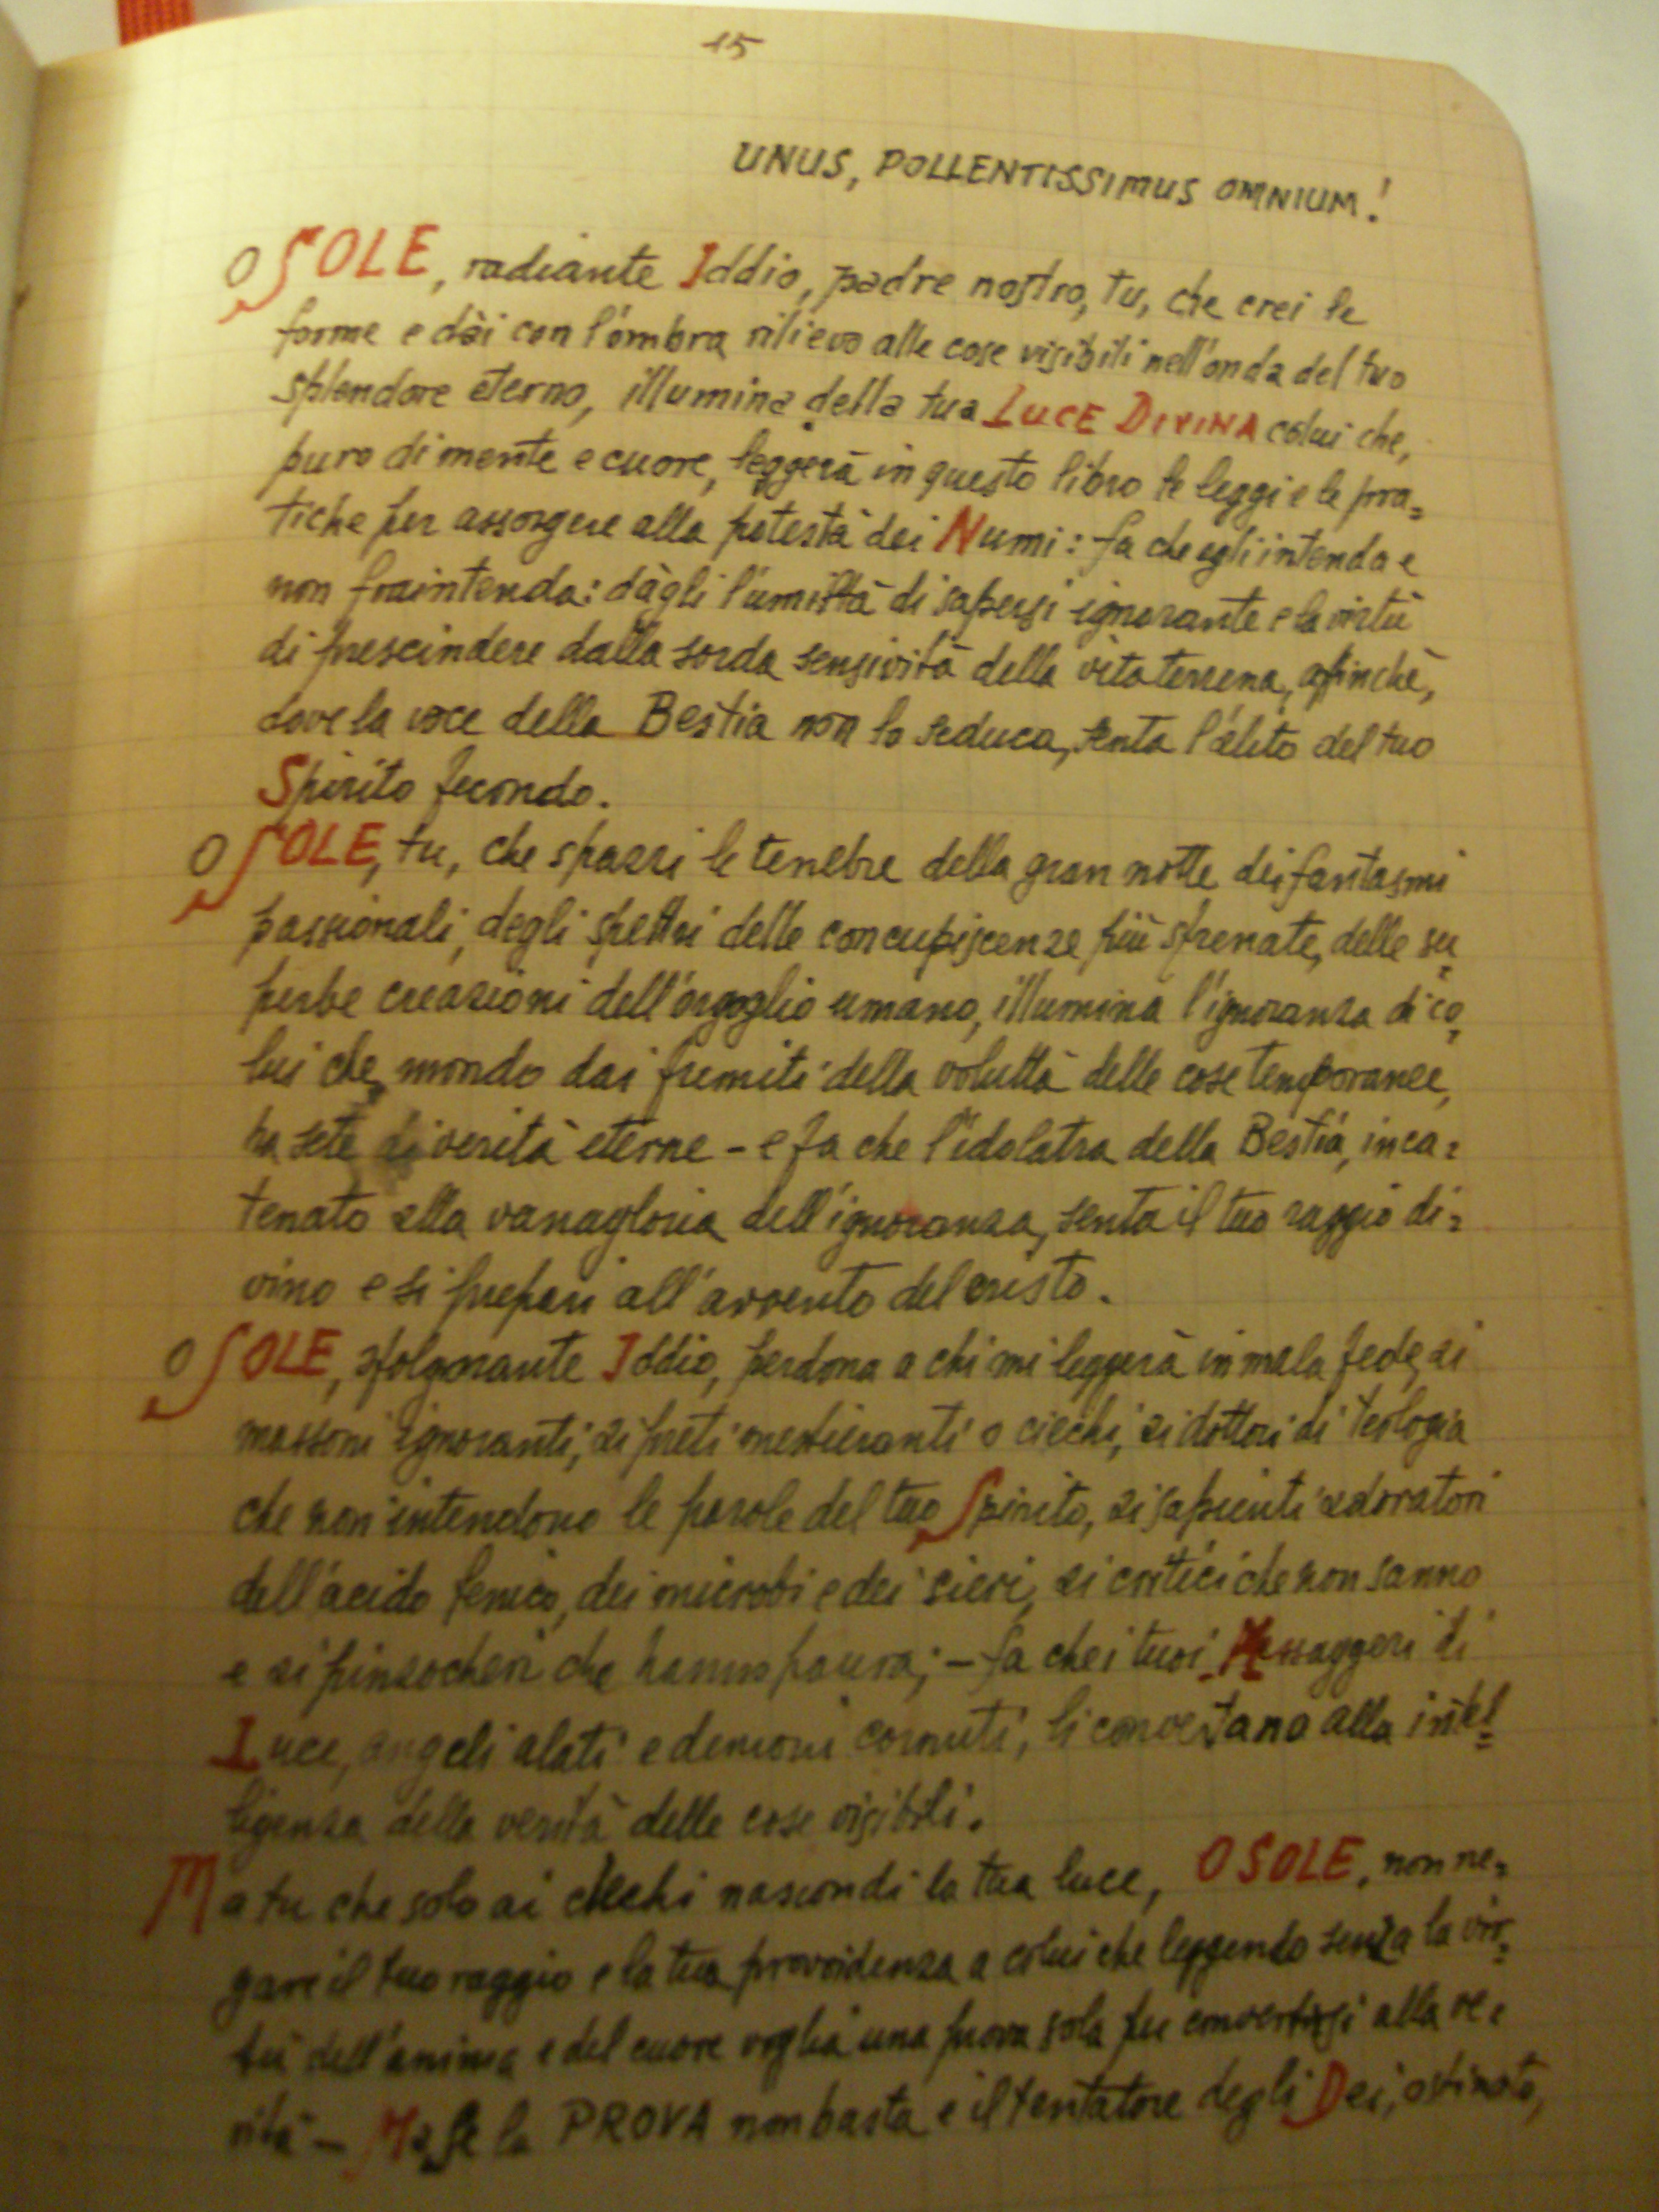 15
UNUS, POLLENTISSIMUS OMNIUM!
O SOLE, radiante Iddio, padre nostro, tu, che crei le
forme e dài con l'ombra rilievo alle cose visibili nell'onda del tuo
splendore eterno, illumina della tua LUCE DIVINA colui che,
puro di mente e cuore, leggerà in questo libro le leggi e le pra=
tiche per assorgere alla potestà dei Numi: fa che egli intenda e
non fraintenda: dàgli l'umiltà di sapersi ignorante e la virtù
di prescindere dalla sorda sensività della vita terrena, affinchè,
dove la voce della Bestia non lo seduca, senta l'alito del tuo
Spirito fecondo.
O SOLE, tu, che spazzi le tenebre della gran notte dei fantasmi
passionali, degli spettri delle concupiscenze più sfrenate, delle su=
perbe creazioni dell'orgoglio umano, illumina l'ignoranza di co=
lui che, mondo dai fremiti della voluttà delle cose temporanee,
ha sete di verità eterne - e fa che l'idolatra della Bestia, inca=
tenato alla vanagloria dell'ignoranza, senta il tuo raggio di=
vino e si prepari all'avvento del cristo.
O SOLE, sfolgorante Iddio, perdona a chi mi leggerà in mala fede, ai
massoni ignoranti, ai preti mestieranti o ciechi, ai dottori di teologia
che non intendono le parole del tuo Spirito, ai sapienti adoratori
dell'acido fenico, dei microbi e dei sieri, ai critici che non sanno
e ai pinzocheri che hanno paura; - fa che i tuoi Messaggeri di
Luce, angeli alati e demoni cornuti, li convertano alla intel=
ligenza della verità delle cose visibili.
Ma tu che solo ai ciechi nascondi la tua luce, O SOLE, non ne=
gare il tuo raggio e la tua provvidenza a colui che leggendo senza la vir=
tù dell'anima e del cuore voglia una prova sola per convertirsi alla ve=
rità - Ma se la PROVA non basta e il tentatore degli Dei, ostinato,